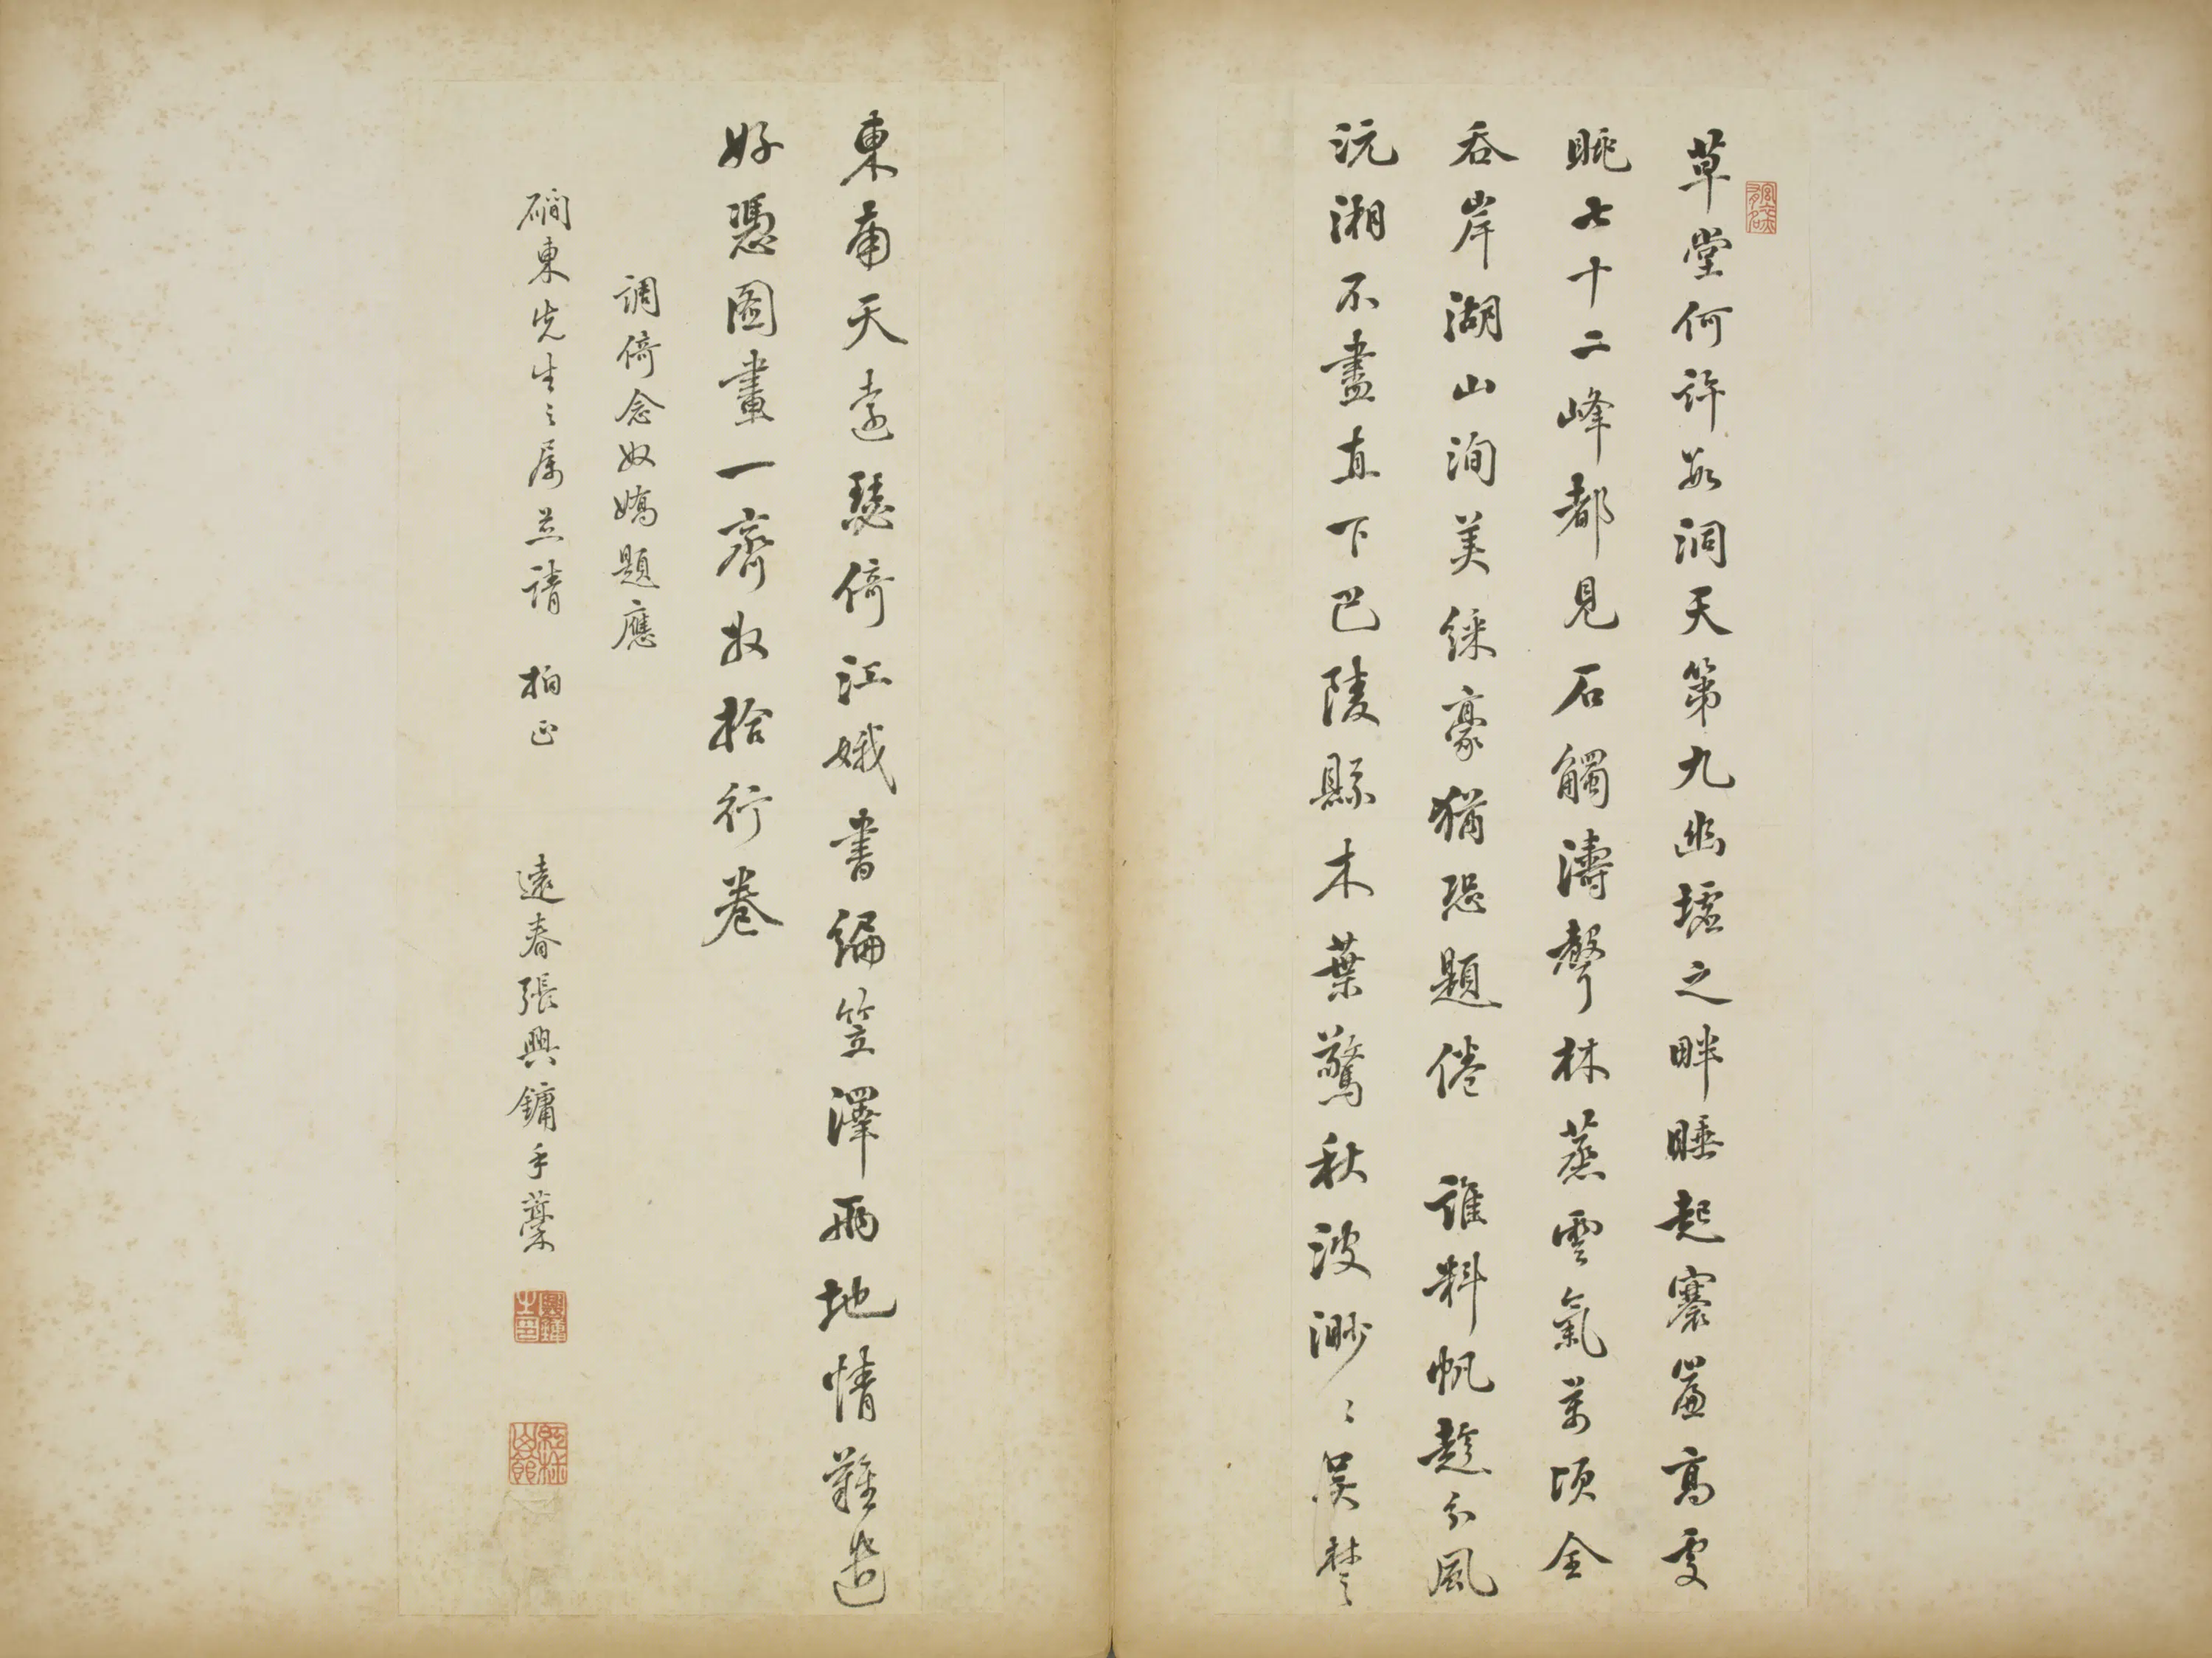 草堂何許數洞天第九幽墟之畔睡起褰簾高處
眺七十二峰都見石觸濤聲林蒸雲氣萬頃全
吞岸湖山洵美綵豪猶恐題倦 誰料帆趁分風
沅湘不盡直下巴陵縣木葉驚秋波渺〻吳楚
東南天遠瑟倚江娥書編笠澤兩地情難遣
好憑圖畫一齊收拾行卷
調倚念奴嬌題應
磵東先生之属並請 拍正 遠春張興鏞手藁
興鏞之印
紅椒山館